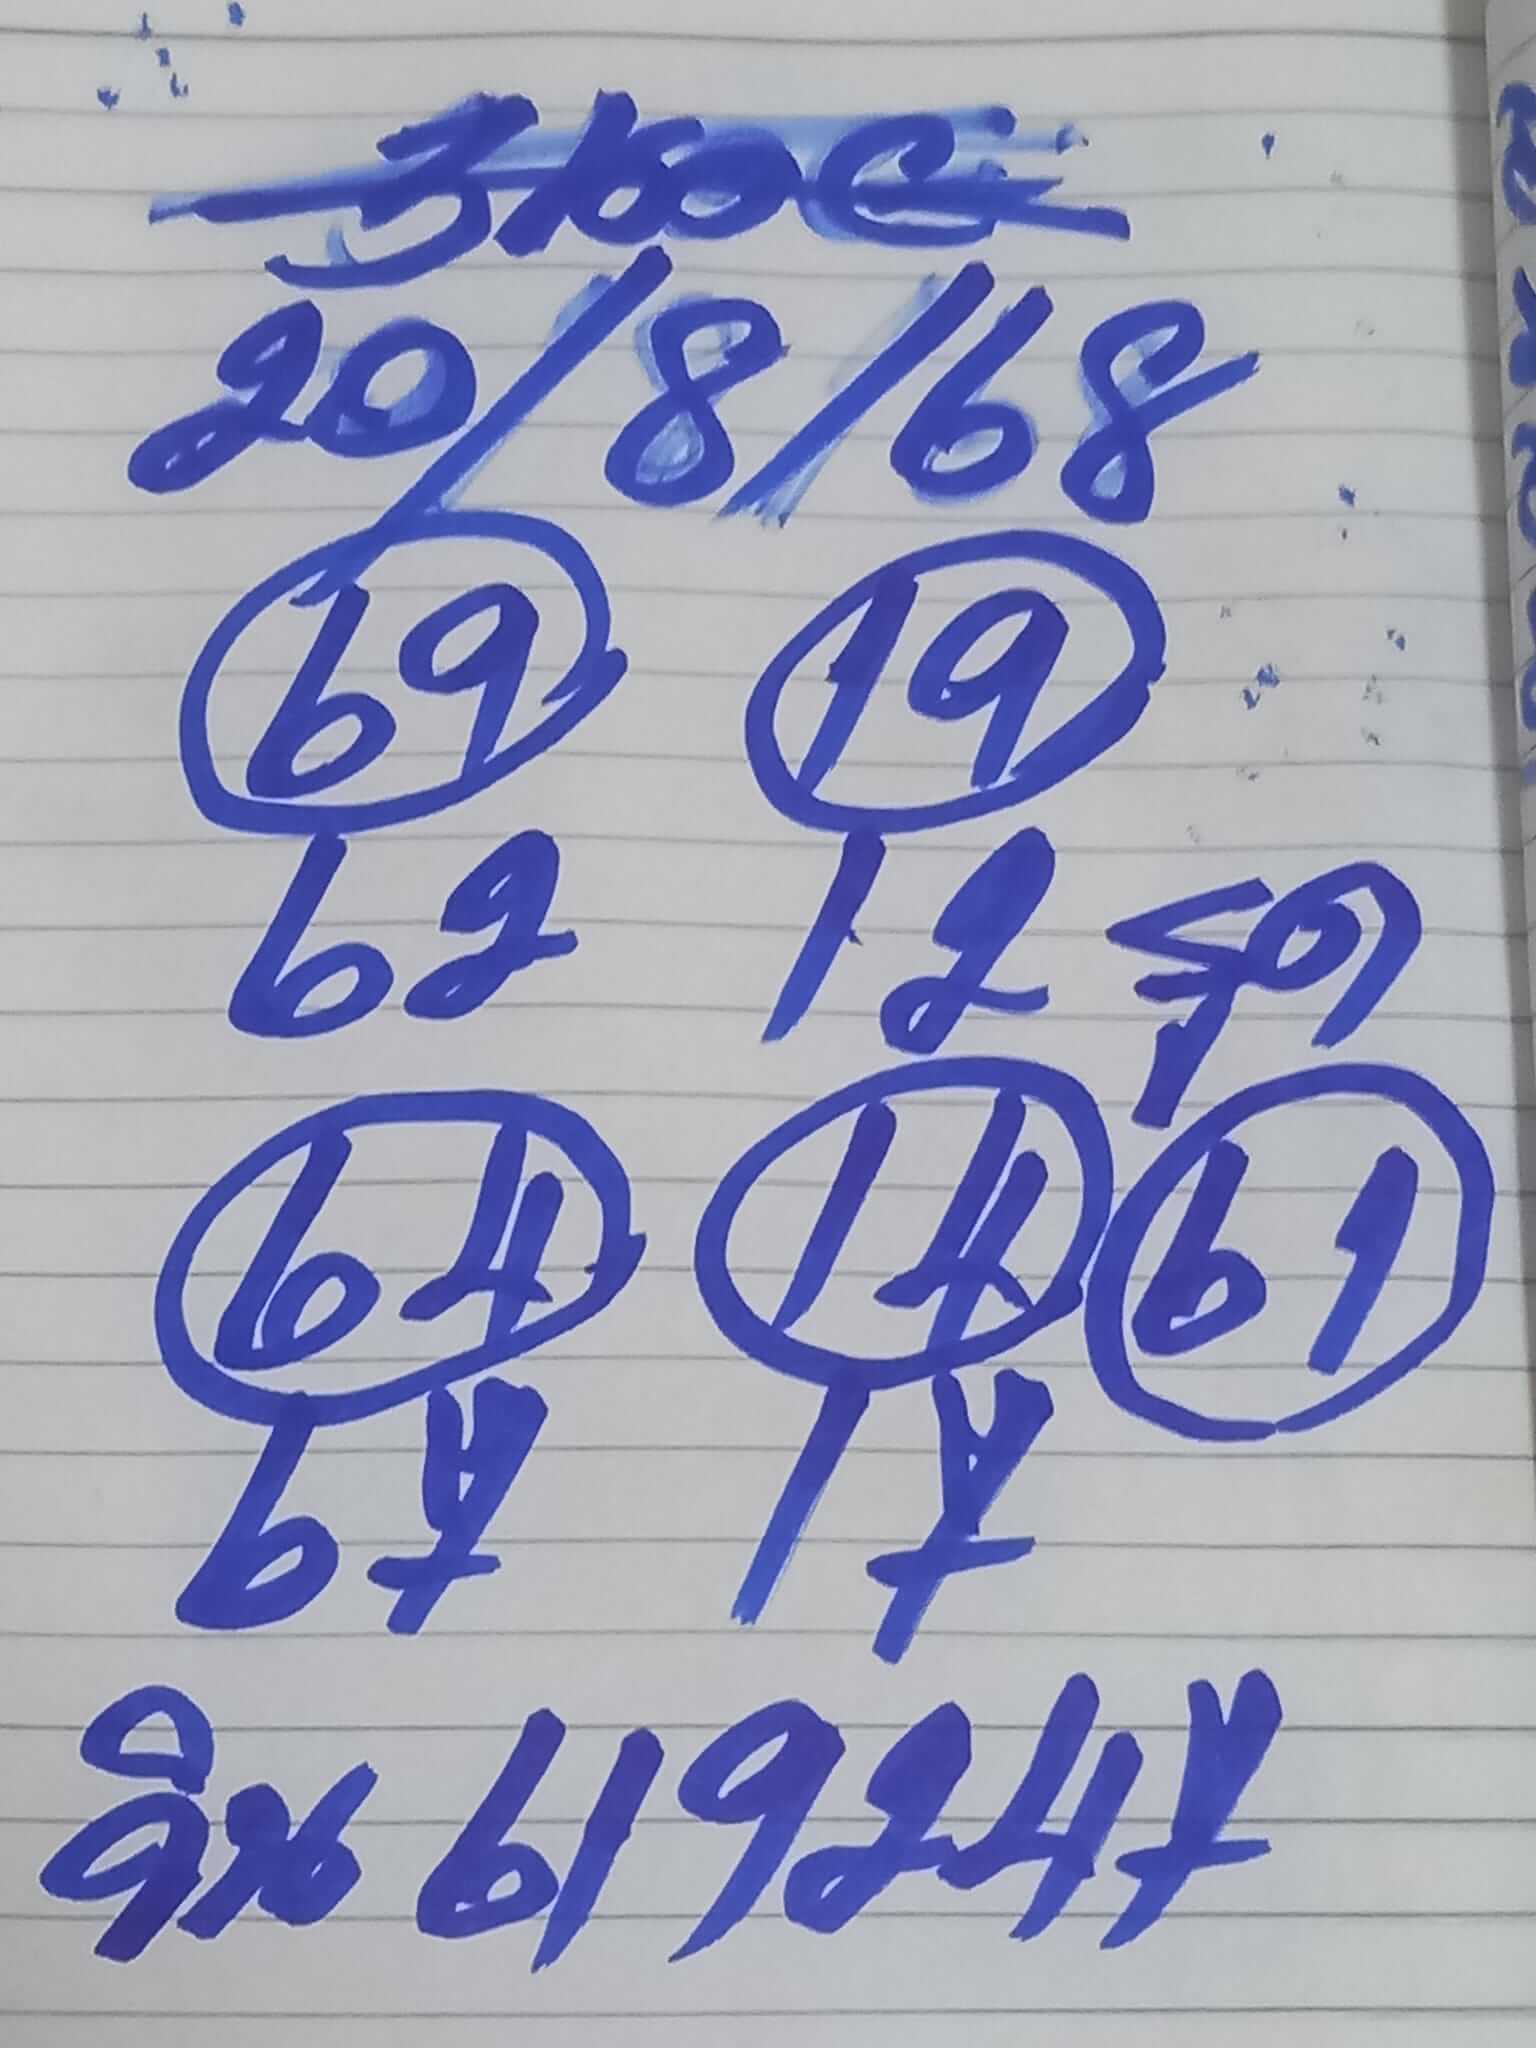 20/8/68
69 19
62 12
รูด
64 14 61
67 17
วิน 619247